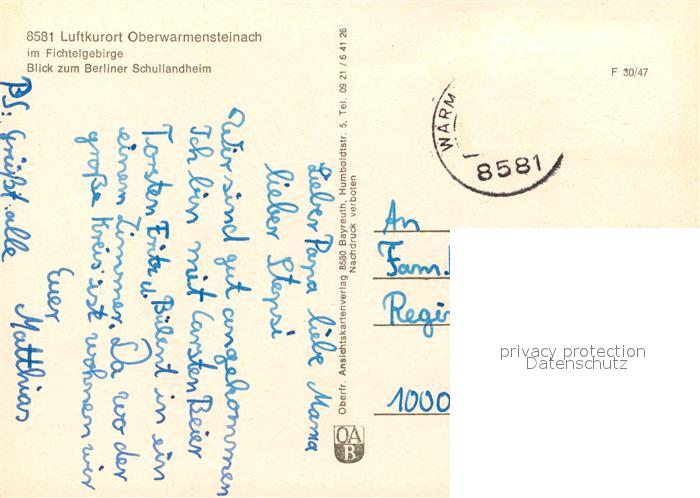 8581 Luftkurort Oberwarmensteinach
im Fichtelgebirge
Blick zum Berliner Schullandheim
F 30/47
WARM
8581
Oberfr. Ansichtskartenverlag 8580 Bayreuth, Humboldtstr. 5, Tel. 09 21 / 6 41 26
Nachdruck verboten
OA
B
Lieber Papa liebe Mama
lieber Stepsi
Wir sind gut angekommen
Ich bin mit Carsten Beier
Torsten Fritz u. Bülent in ein
einem Zimmer. Da wo der
große Kreis ist wohnen wir
Euer
Matthias
PS: Grüßt alle
An
Fam.
Regi
1000
privacy protection
Datenschutz